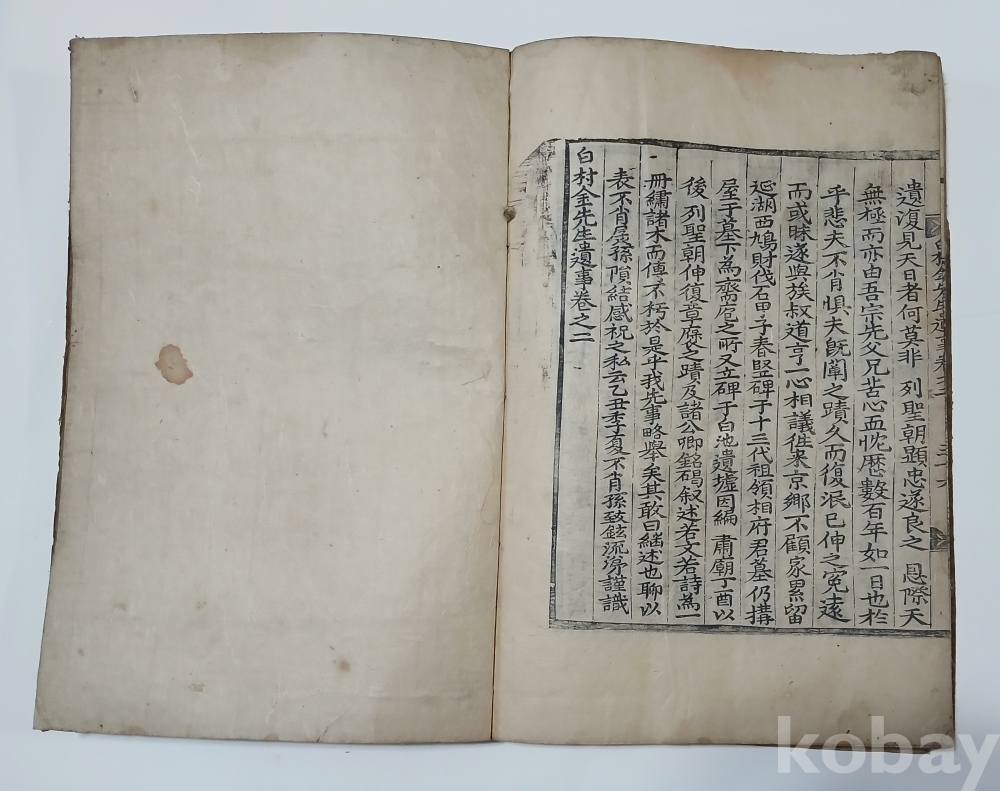 遺復見天日者何莫非 列聖朝顯忠遂良之 恩際天
無極而亦由吾宗先父兄苦心血忱歷數百年如一日也於
乎悲夫不肖惧夫旣闡之蹟久而復泯已伸之寃遠
而或昧遂與族叔道亨一心相議徃来京鄉不顧家累留
延湖西鳩財伐石甲子春竪碑于十三代祖領相府君墓仍搆
屋于墓下為齋庖之所又立碑于白池遺墟因編 肅廟丁酉以
後 列聖朝伸復章府之蹟及諸公卿銘碣叙述若文若詩為一
冊繡諸木而傳不朽於是乎我先事略舉矣其敢曰継述也聊以
表不肖孱孫隕結感祝之私云乙丑季夏不肖孫致鉉流涕謹識
白村金先生遺事卷之二
白村金先生遺事卷之二
kobay